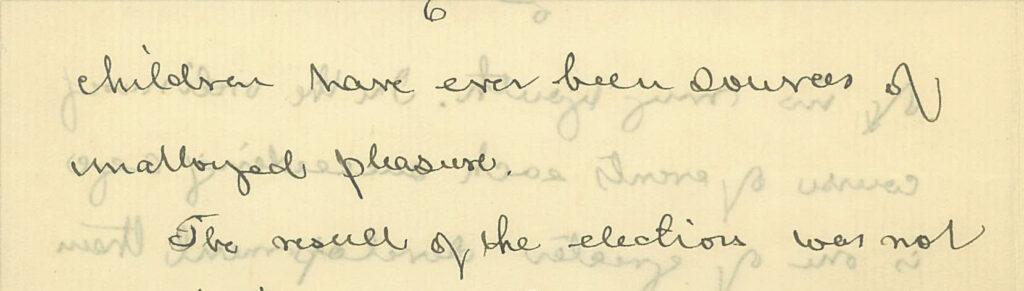 6
children have ever been sources of
unalloyed pleasure.
The result of the election was not